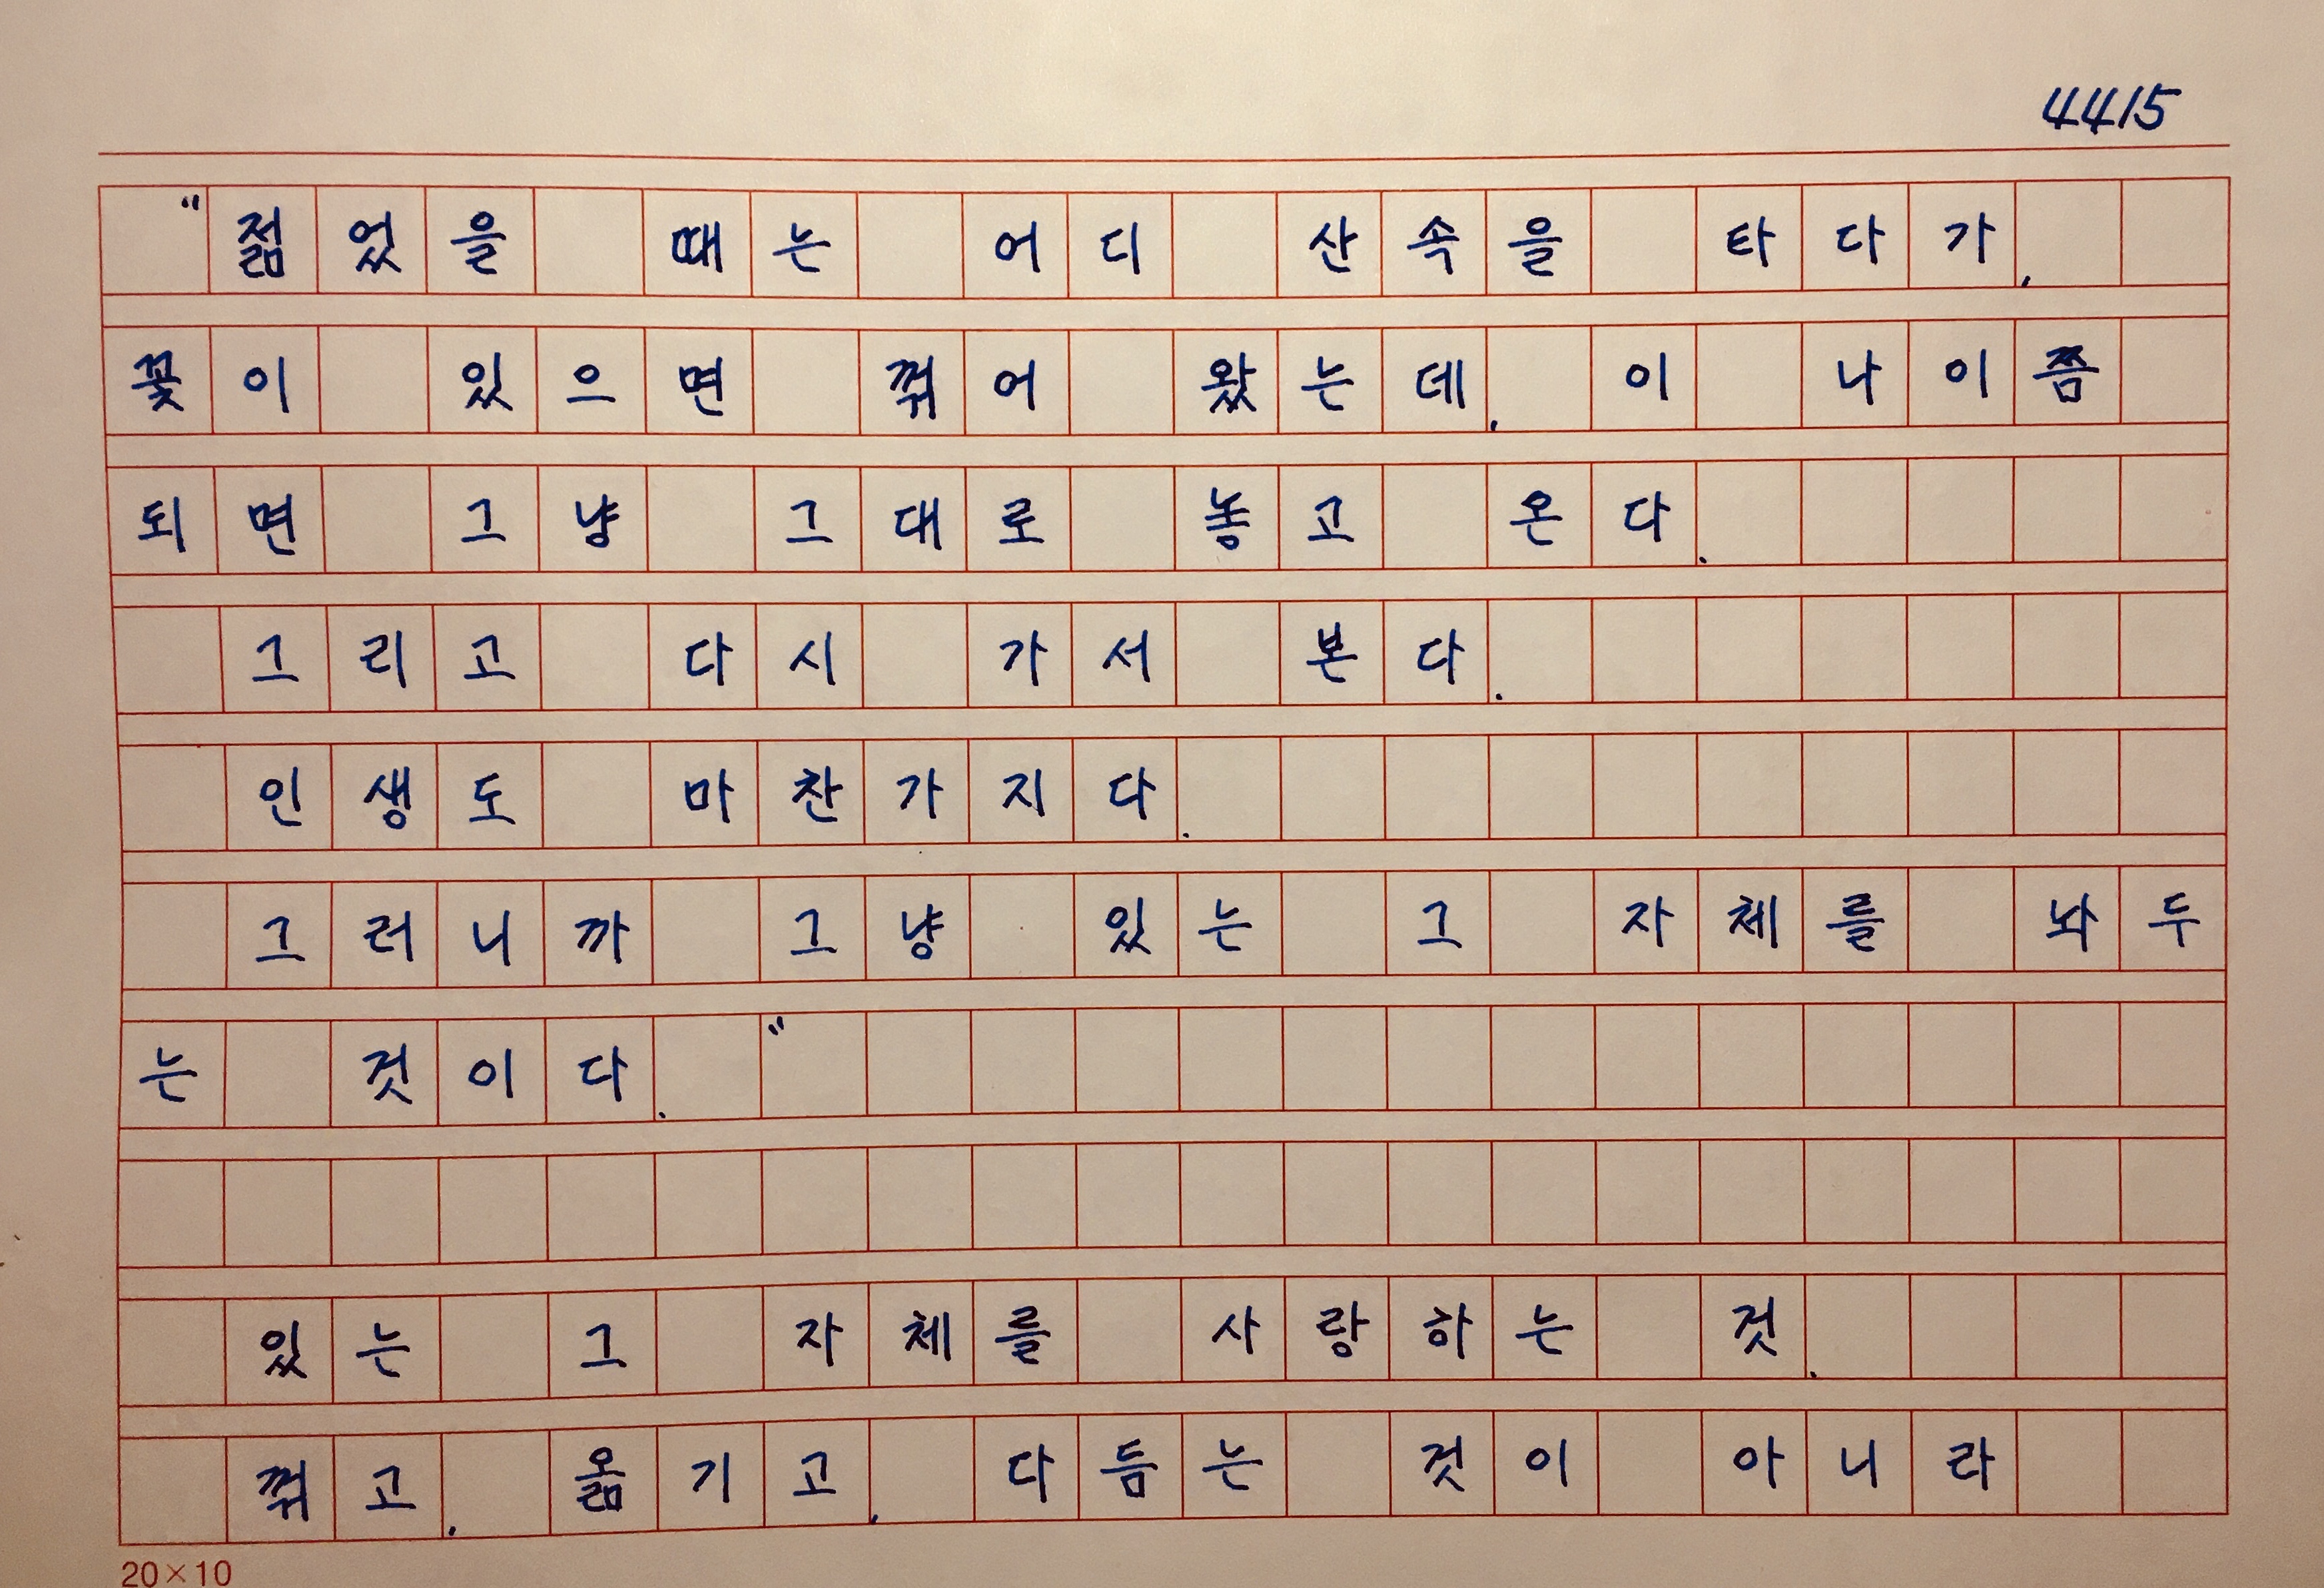 4415
"젊었을 때는 어디 산속을 타다가,
꽃이 있으면 꺾어 왔는데, 이 나이쯤
되면 그냥 그대로 놓고 온다.
그리고 다시 가서 본다.
인생도 마찬가지다.
그러니까 그냥 있는 그 자체를 놔두
는 것이다."
있는 그 자체를 사랑하는 것.
꺾고, 옮기고, 다듬는 것이 아니라
20×10